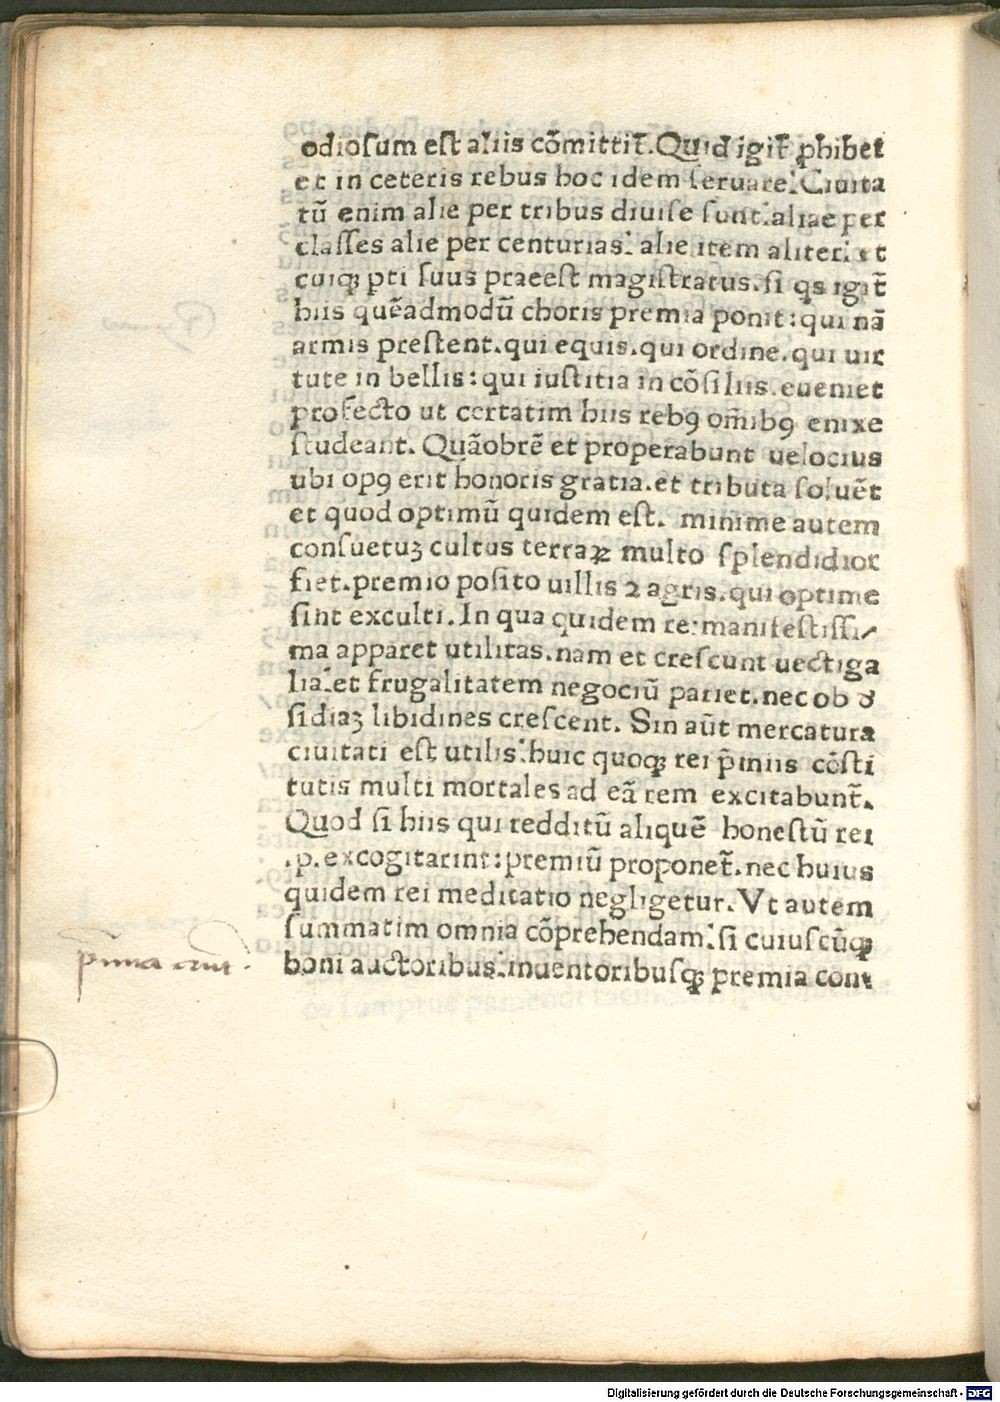 odiosum est aliis cōmittit̄. Quid igit̄ ꝓhibet
et in ceteris rebus hoc idem seruare? Ciuita
tū enim alie per tribus diuise sunt: aliae per
classes alie per centurias: alie item aliter: et
cuiqꝫ pti suus praeest magistratus. si qs igit̄
hiis quēadmodū choris premia ponit: qui nā
armis prestent. qui equis. qui ordine. qui uir
tute in bellis: qui iustitia in cōsiliis. eueniet
profecto ut certatim hiis rebꝯ om̄ibꝯ enixe
studeant. Quāobrē et properabunt uelocius
ubi opꝯ erit honoris gratia. et tributa soluēt
et quod optimū quidem est. minime autem
consuetuꝫ cultus terraꝝ multo splendidior
fiet. premio posito uillis ⁊ agris. qui optime
sint exculti. In qua quidem re: manifestissi⸗
ma apparet utilitas. nam et crescunt uectiga
lia: et frugalitatem negociū pariet. nec ob d̕
sidiaꝫ libidines crescent. Sin aūt mercatura
ciuitati est utilis: huic quoqꝫ rei p̄miis cōsti
tutis multi mortales ad eā rem excitabunt̄.
Quod si hiis qui redditū aliquē honestū rei
.p. excogitarint: premiū proponet̄. nec huius
quidem rei meditatio negligetur. Vt autem
summatim omnia cōprehendam: si cuiuscūqꝫ
boni auctoribus: inuentoribusqꝫ premia con⸗
Digitalisierung gefördert durch die Deutsche Forschungsgemeinschaft - DFG